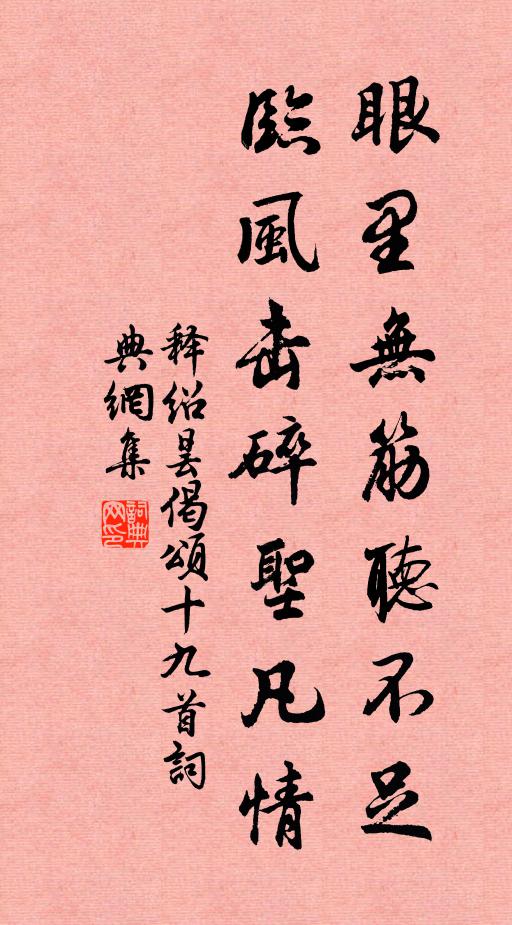 眼里無筋聽不足
臨風击碎聖凡情
释绍昙偈頌十九首詞
典網集
詞典网印